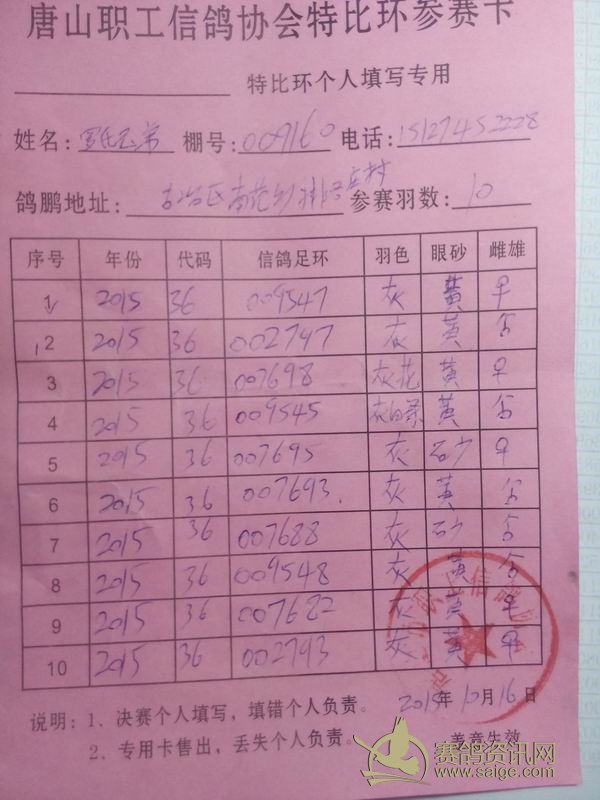 唐山职工信鸽协会特比环参赛卡
特比环个人填写专用
姓名: 棚号:009160 电话:15127452228
鸽鹏地址: 古冶区 参赛羽数: 10
序号 年份 代码 信鸽足环 羽色 眼砂 雌雄
1 2015 36 009547 灰 黄 ♀
2 2015 36 002747 灰 黄 ♂
3 2015 36 007698 灰花 黄 ♀
4 2015 36 009545 灰白条 黄 ♂
5 2015 36 007695 灰 砂 ♀
6 2015 36 007693. 灰 黄 ♂
7 2015 36 007688 灰 砂 ♂
8 2015 36 009548 灰 黄 ♂
9 2015 36 007682 灰 黄 ♀
10 2015 36 002793 灰 黄 ♀
2015年10月16日
说明:1、决赛个人填写,填错个人负责。
2、专用卡售出,丢失个人负责。 盖章失效
赛鸽资讯网
www.saige.com